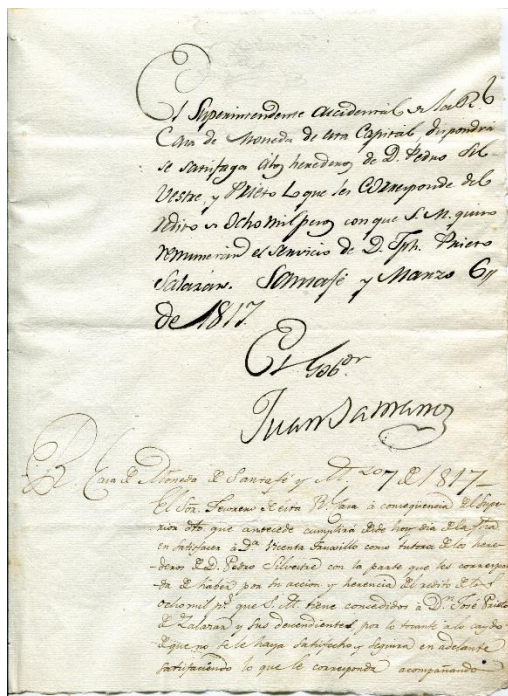 El Superintendente accidental de la Rl
Casa de Moneda de esta Capital, dispondra
se satisfaga á los herederos de D. Pedro Sil-
vestre, y Prieto Lo que les corresponde del
redito de Ocho mil pesos con que S. M. quiso
remunerar el servicio de D. Jph. Prieto
Salazár. Santafé y Marzo 6,,
de 1817.
El Gobor
Juan Samano
Rl. Casa de Moneda de Santafé y Mzo 7 de 1817
El Sor. Tesorero de esta Rl. Casa á conseqüencia del Supe-
rior dto que antecede cumplirá desde hoy dia de la fha
en satisfacer á Da Vicenta como tutora de los here-
deros de D. Pedro Silvestre con la parte que les correspon-
da de haber por su accion y herencia del redito de los
Ochomil ps que S. M. tiene concedidos á Dn José Prieto
de Zalazar y sus decendientes por lo tocante a lo caydo
de que no se le haya satisfecho y seguirá en adelante
satisfaciendo lo que le corresponda acompañando